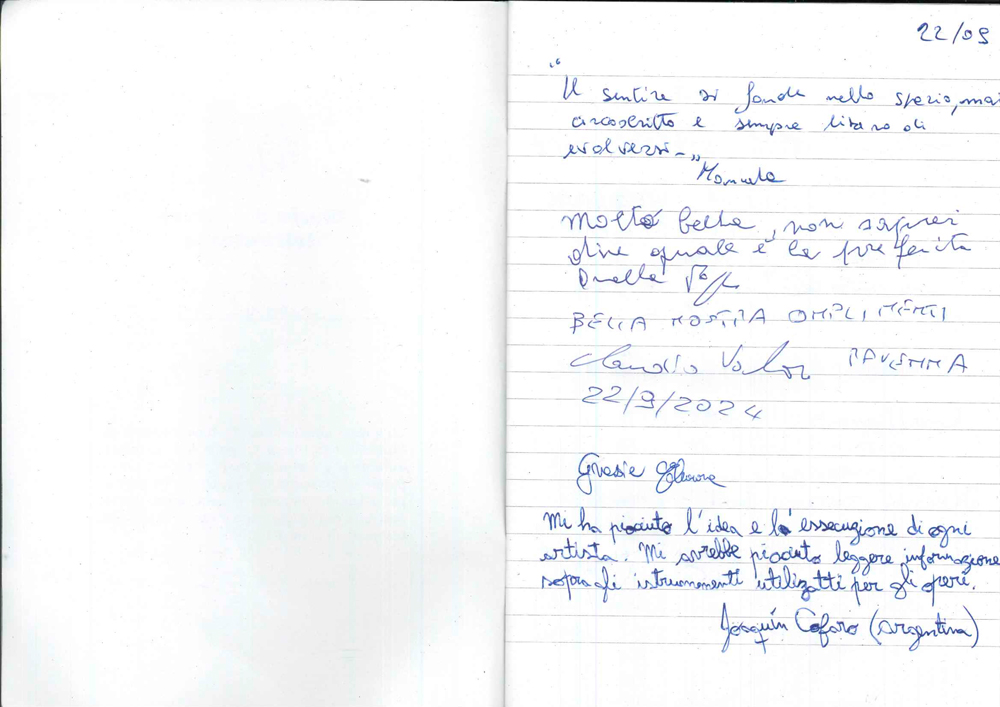 22/09
"
Il sentire si fonde nello spazio, mai
circoscritto e sempre libero di
evolversi-"
Manuela
Molto bella, non saprei
dire quale è la preferita
Quella
BELLA MOSTRA COMPLIMENTI
Claudio RAVENNA
22/9/2024
Grazie Eleonora
Mi ha piaciuto l'idea e la essecuzione di ogni
artista. Mi avrebbe piaciuto leggere informazione
sopra gli istrumenti utilizatti per gli operi.
Joaquín Cafaro (Argentina)